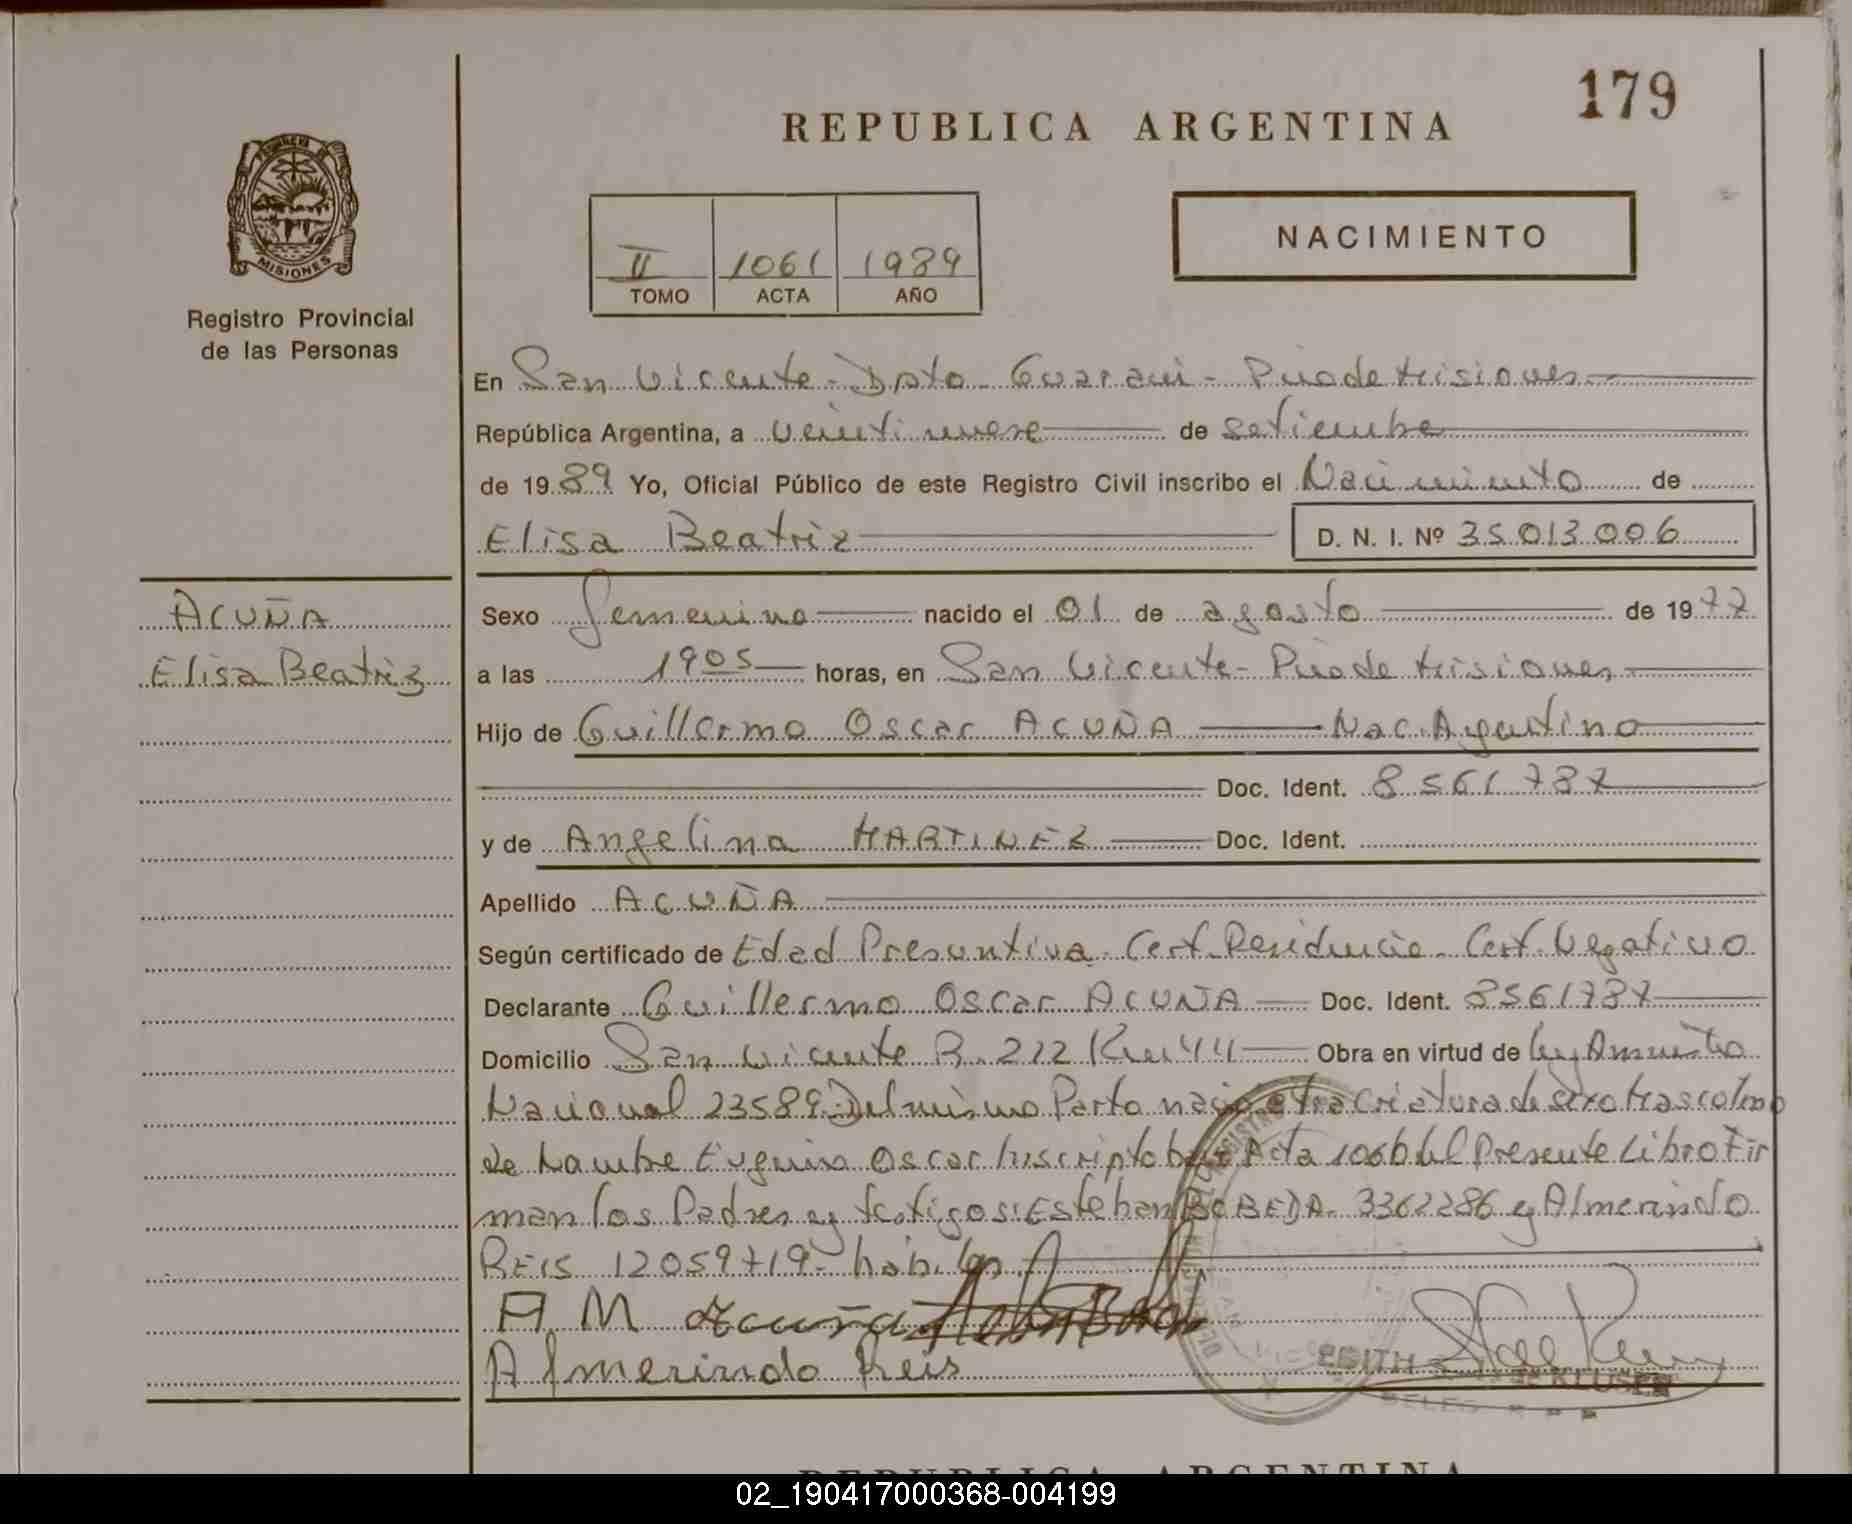 179
REPUBLICA ARGENTINA
PROVINCIA DE
MISIONES
Registro Provincial
de las Personas
II 1061 1989
TOMO ACTA AÑO
NACIMIENTO
En San Vicente - Dpto. Guarani - Pcia de Misiones
República Argentina, a veintinueve de setiembre
de 1989 Yo, Oficial Público de este Registro Civil inscribo el Nacimiento de
Elisa Beatriz D. N. I. Nº 35013006
ACUÑA
Elisa Beatriz
Sexo Femenino nacido el 01 de agosto de 1977
a las 1905 horas, en San Vicente - Pcia de Misiones
Hijo de Guillermo Oscar ACUÑA Nac. Argentino
Doc. Ident. 8561787
y de Angelina MARTINEZ Doc. Ident.
Apellido ACUÑA
Según certificado de Edad Presuntiva - Cert. Residencia - Cert. Negativo
Declarante Guillermo Oscar ACUÑA Doc. Ident. 8561787
Domicilio San Vicente R. 212 Km 44 Obra en virtud de ley Amnistia
Nacional 23589. Del mismo Parto nacio otra Criatura de sexo
de Nombre Eugenio Oscar Inscripto bajo Acta 1060 del Presente Libro Fir
man los Padres y testigos: Esteban BOBEDA 3362286 y Almerindo
REIS 12059719 - hábiles
A M Acuña
Almerindo Reis
EDITH
DE KLUSER
REPUBLICA ARGENTINA
02_190417000368-004199